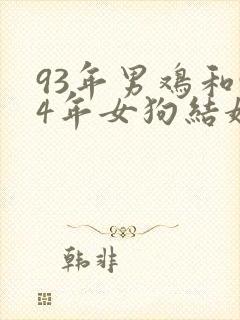 93年男鸡和
4年女狗結
韩非